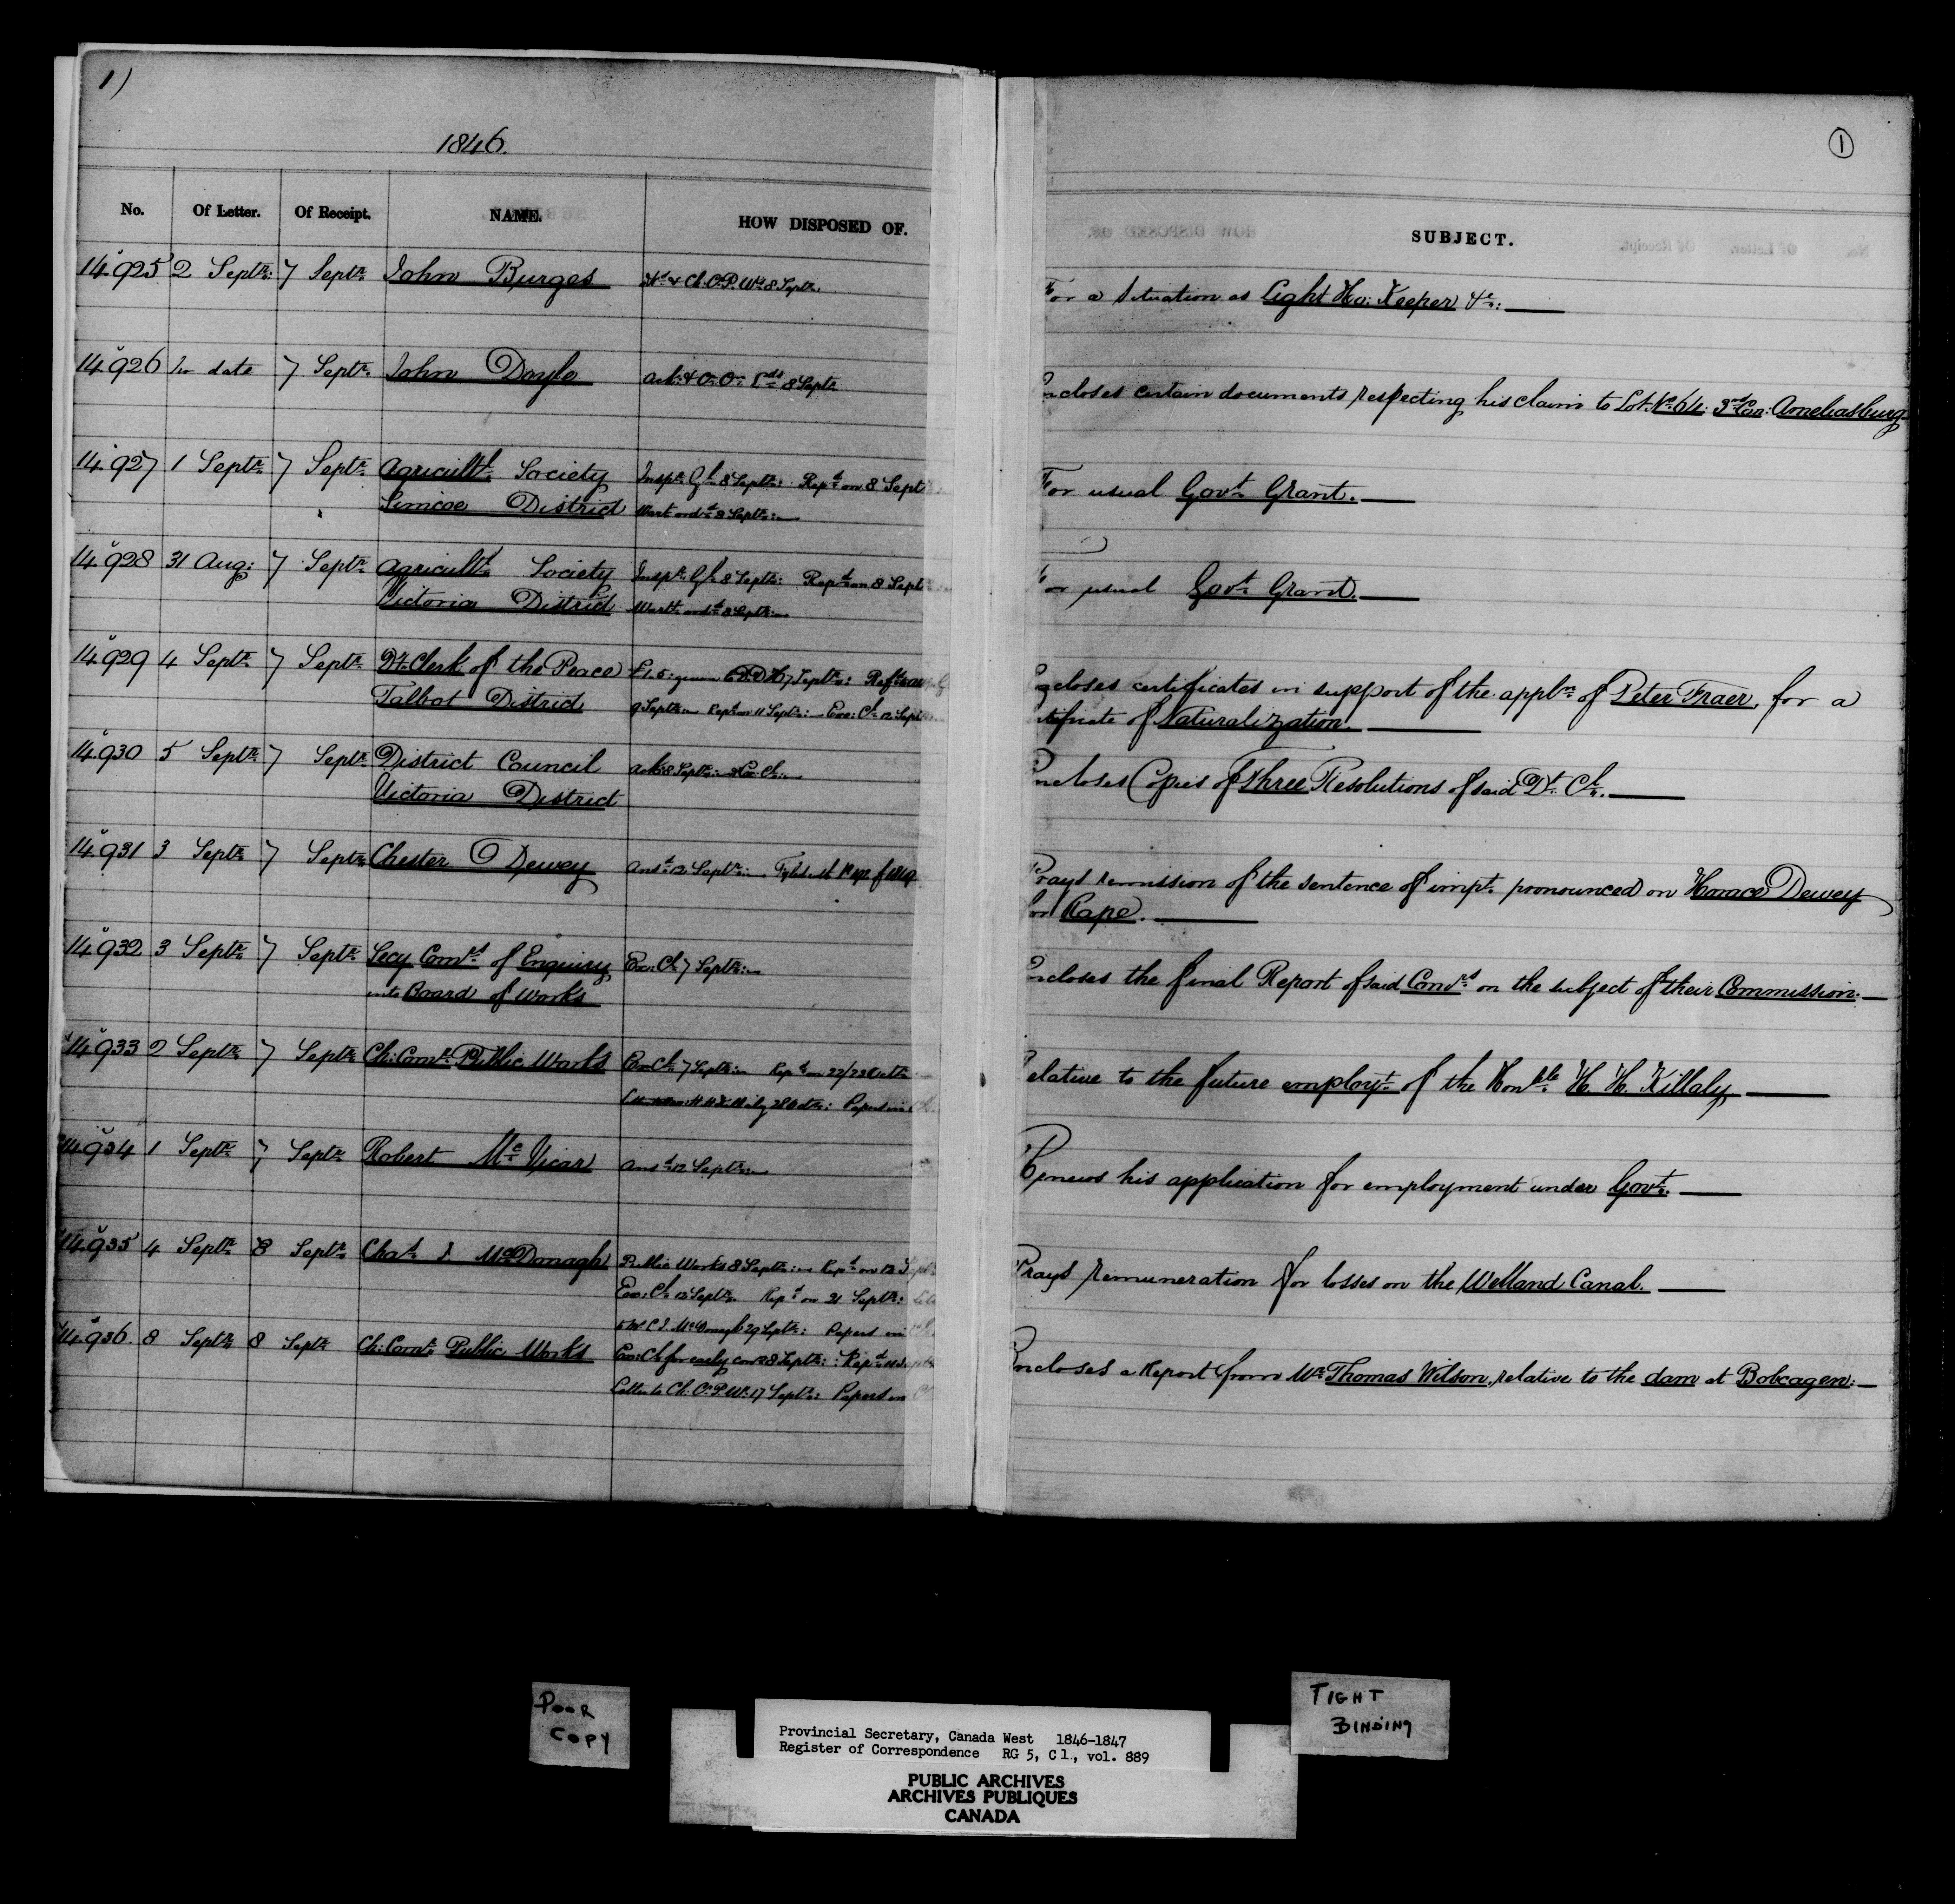 1)
1846.
No. Of Letter. Of Receipt. NAME. HOW DISPOSED OF.
14.925 2 Septr. 7 Septr. John Burges & Ch. C. P. Ws 8 Septr.
14.926 No date 7 Septr. John Doyle 8 Septr.
14.927 1 Septr. 7 Septr. Agricultl. Society Inspr. Gl. 8 Septr: Repd. on 8 Sept
Simcoe District Warrt. ordd. 8 Septr:
14.928 31 Aug: 7 Septr. Agricultl. Society Inspr. Gl. 8 Septr: Repd. on 8 Sept
Victoria District Warrt. ordd. 8 Septr:
14.929 4 Septr. 7 Septr. Dy. Clerk of the Peace £1.5. 7 Septr:
Talbot District 9 Septr: Repd. on 11 Septr: Exe: Cl. 12 Sept
14.930 5 Septr. 7 Septr. District Council ack. 8 Septr:
Victoria District
14.931 3 Septr. 7 Septr. Chester Dewey Ansd. 12 Septr:
14.932 3 Septr. 7 Septr. Secy Comrs. of Enquiry Exe: Cl. 7 Septr:
into Board of Works
14.933 2 Septr. 7 Septr. Ch: Comr. Public Works Exe: Cl. 7 Septr: Repd. on 22/23 Octr.
H H Killaly Octr: Papers in
14.934 1 Septr. 7 Septr. Robert McVicar Ansd. 12 Septr:
14.935 4 Septr. 8 Septr. Chas. J. McDonagh Public Works 8 Septr: Repd. on 12 Sept
Exe: Cl. 12 Septr. Repd. on 21 Septr:
to Mr C. J. McDonagh 29 Septr: Papers in
14.936. 8 Septr. 8 Septr. Ch: Comr. Public Works Exe: Cl. for early con 8 Septr:
Letter to Ch. C. P. Ws. 17 Septr: Papers in
1
SUBJECT.
For a situation as Light Ho: Keeper &c:
Encloses certain documents respecting his claim to Lot No. 64: 3rd Con: Ameliasburg
For usual Govt. Grant.
For usual Govt. Grant.
Encloses certificates in support of the appln. of Peter Fraer, for a
certificate of Naturalization.
Encloses Copies of Three Resolutions of said Dt. Cl.
Prays remission of the sentence of impt. pronounced on Horace Dewey
for Rape.
Encloses the final Report of said Comrs. on the subject of their Commission.
Relative to the future employt. of the Honble H. H. Killaly
Renews his application for employment under Govt.
Prays remuneration for losses on the Welland Canal.
Encloses a Report from Mr Thomas Wilson, relative to the dam at Bobcagen:
POOR
COPY
TIGHT
BINDING
Provincial Secretary, Canada West 1846-1847
Register of Correspondence RG 5, C 1., vol. 889
PUBLIC ARCHIVES
ARCHIVES PUBLIQUES
CANADA